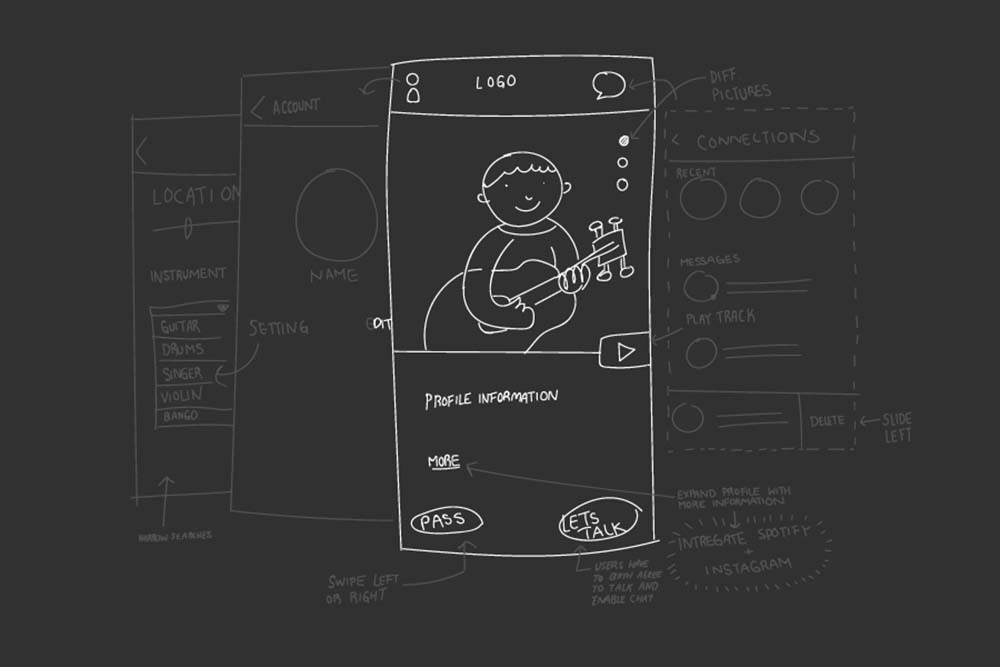 LOCATION
INSTRUMENT
GUITAR
DRUMS
SINGER
VIOLIN
BANGO
NARROW SEARCHES
ACCOUNT
NAME
SETTING
LOGO
PROFILE INFORMATION
MORE
PASS
LETS
TALK
SWIPE LEFT
OR RIGHT
USERS HAVE
TO BOTH AGREE
TO TALK AND
ENABLE CHAT
DIFF
PICTURES
CONNECTIONS
RECENT
MESSAGES
PLAY TRACK
DELETE
SLIDE
LEFT
EXPAND PROFILE WITH
MORE INFORMATION
INTREGATE SPOTIFY
+
INSTAGRAM